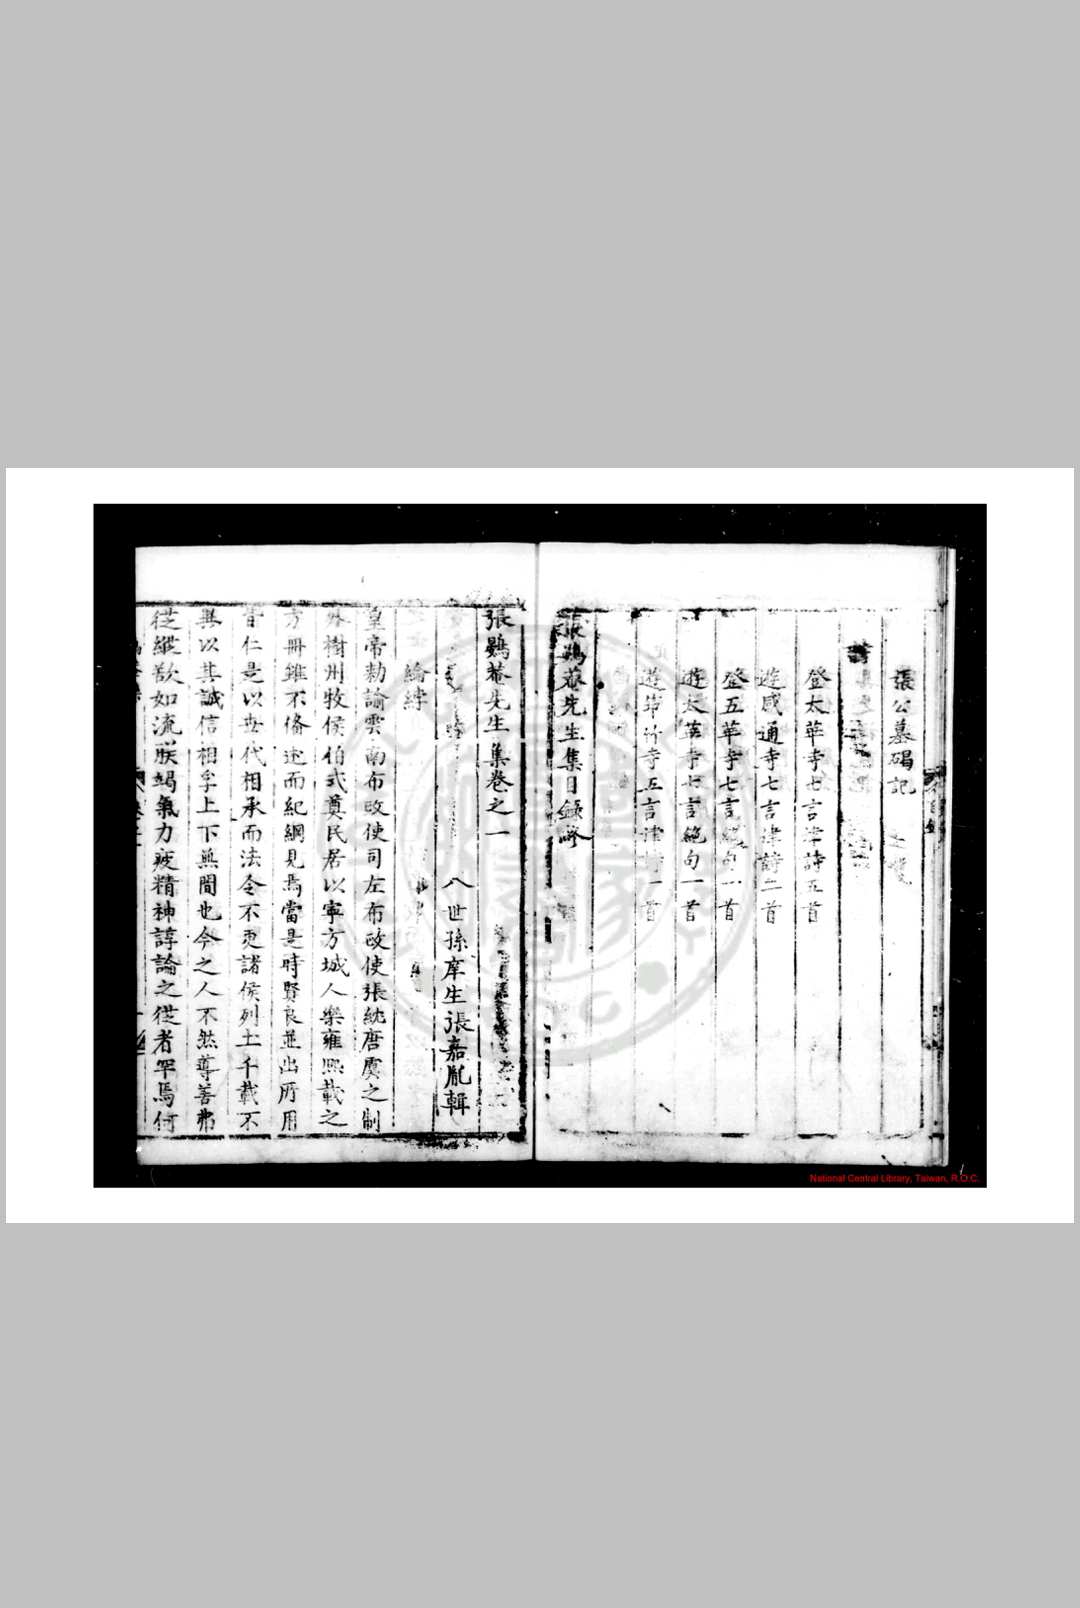 張公墓碣記
登太華寺七言律詩五首
遊感通寺七言律詩二首
登五華寺七言絕句一首
遊太華寺七言絕句一首
遊筇竹寺五言律詩一首
張鶠菴先生集目錄終
張鶠菴先生集卷之一
八世孫庠生張嘉胤輯
綸綍
皇帝勅諭雲南布政使司左布政使張紞唐虞之制
外樹州牧侯伯式奠民居以寧方城人樂雍熙載之
方冊雖不俻述而紀綱見焉當是時賢良並出所用
皆仁是以世代相承而法令不更諸侯列土千載不
異以其誠信相孚上下無間也今之人不然尊善弗
從縱欲如流朕竭氣力疲精神諄諭之從者罕焉何
National Central Library, Taiwan, R.O.C.